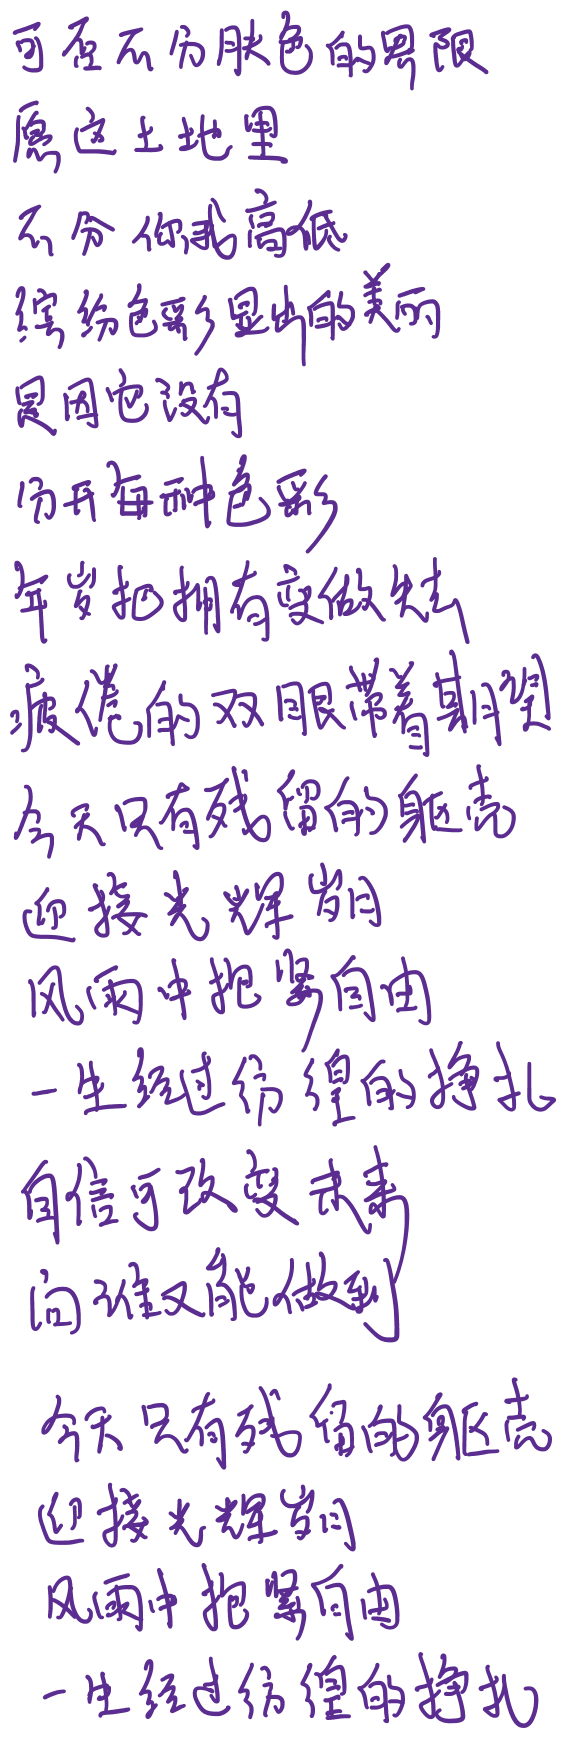 可否不分肤色的界限
愿这土地里
不分你我高低
缤纷色彩显出的美丽
是因它没有
分开每种色彩
年岁把拥有变做失去
疲倦的双眼带着期望
今天只有残留的躯壳
迎接光辉岁月
风雨中抱紧自由
一生经过彷徨的挣扎
自信可改变未来
问谁又能做到
今天只有残留的躯壳
迎接光辉岁月
风雨中抱紧自由
一生经过彷徨的挣扎